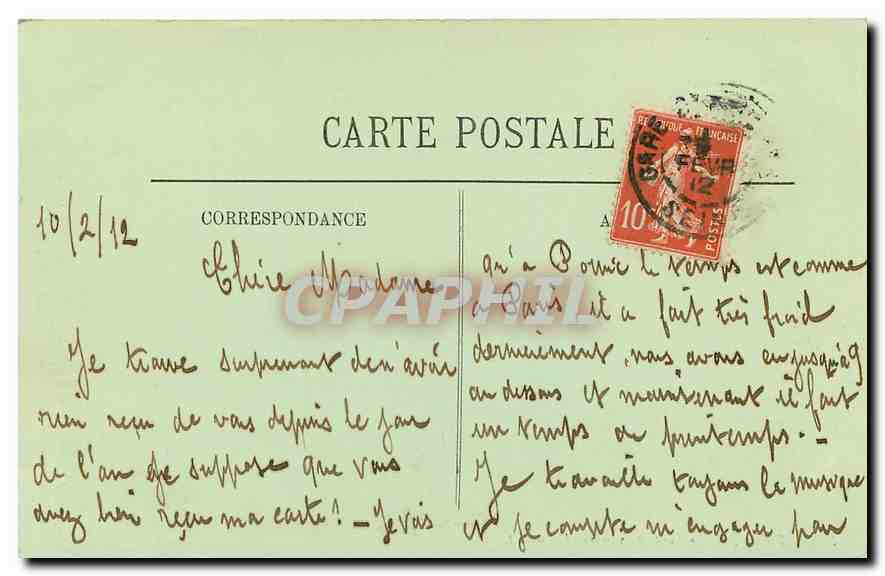 CARTE POSTALE
RÉPUBLIQUE FRANÇAISE
GARE
FEVR
12
10
POSTES
CORRESPONDANCE
A
10/2/12
Chère Madame
Je trouve surprenant de n'avoir
rien reçu de vous depuis le jour
de l'an je suppose que vous
avez bien reçu ma carte! - Je vois
qu'a le temps est comme
a Paris il a fait très froid
dernièrement, nous avons eu jusqu'à 9
au dessous et maintenant il fait
un temps de printemps. -
Je travaille toujours la musique
et je compte m'engager pour
CPAPHIL